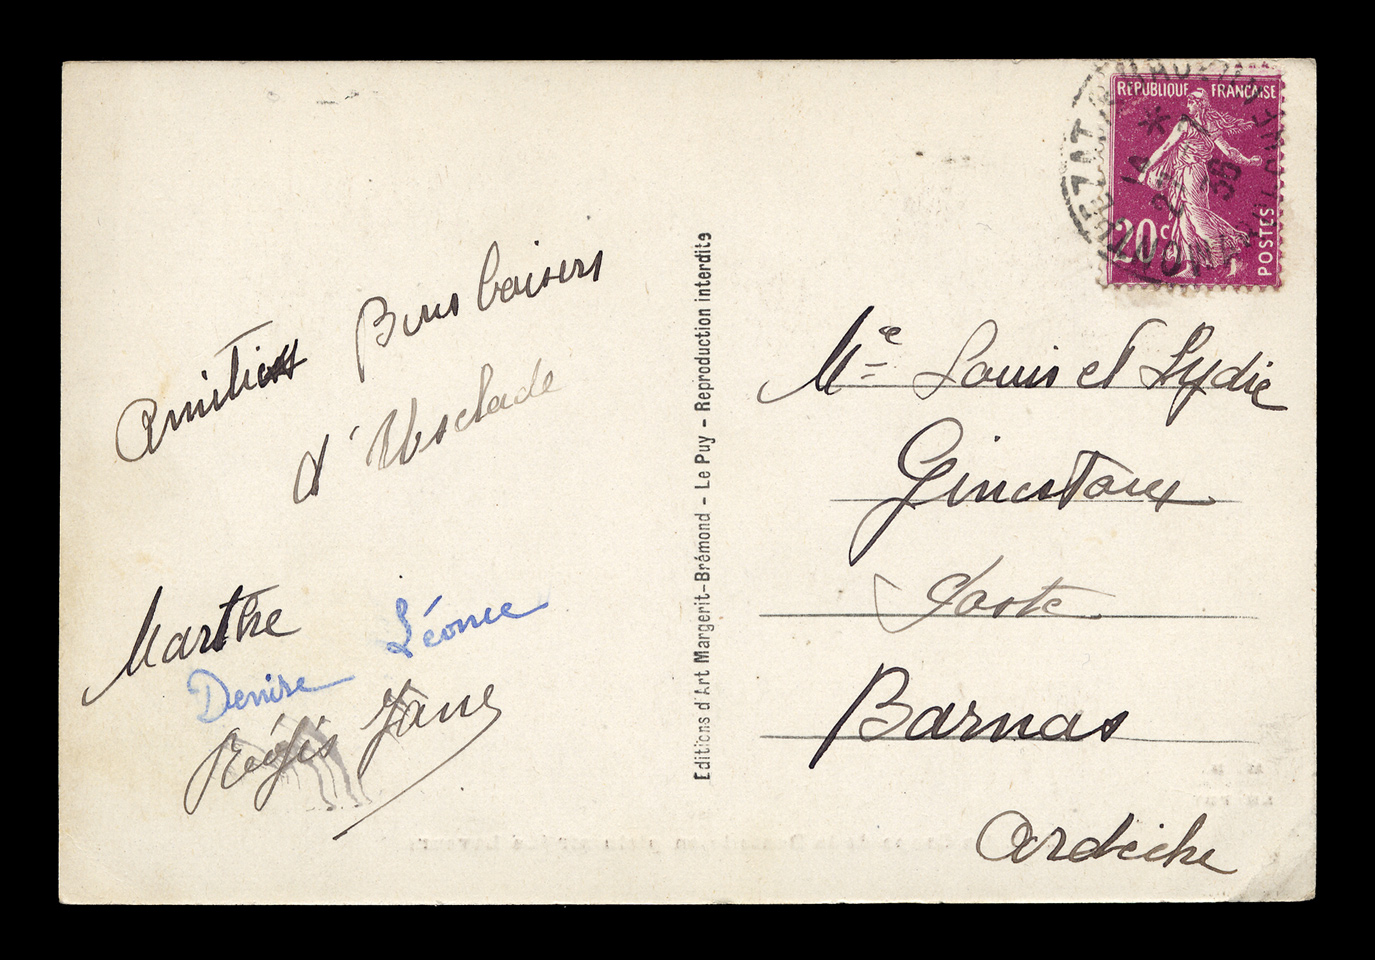 Amitiés Bons baisers
d'Usclade
Marthe
Denise Léonce
Régis Jane
Editions d'Art Margerit-Brémond - Le Puy - Reproduction interdite
REPUBLIQUE FRANCAISE
20c
POSTES
14
35
Me Louis et Lydie
Ginestoux
Poste
Barnas
Ardèche